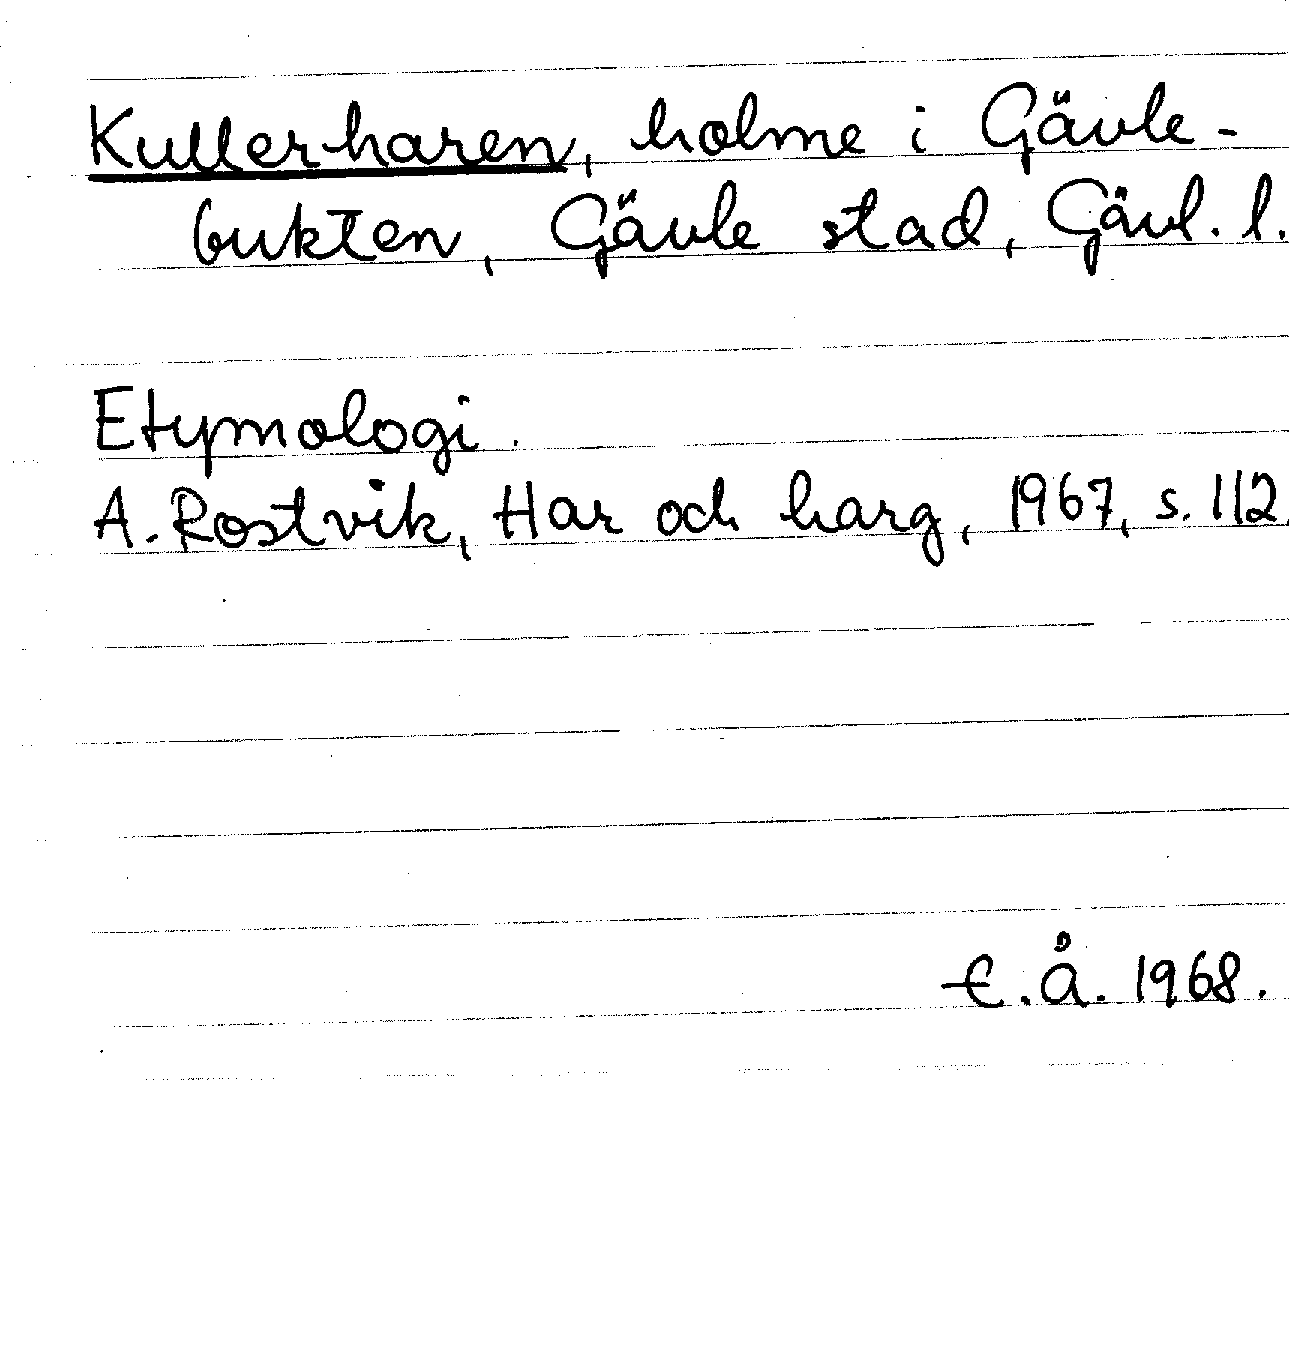 Kullerharen, holme i Gävle-
bukten, Gävle stad, Gävl. l.
Etymologi.
A. Rostvik, Har och harg, 1967, s. 112.
E.Å. 1968.